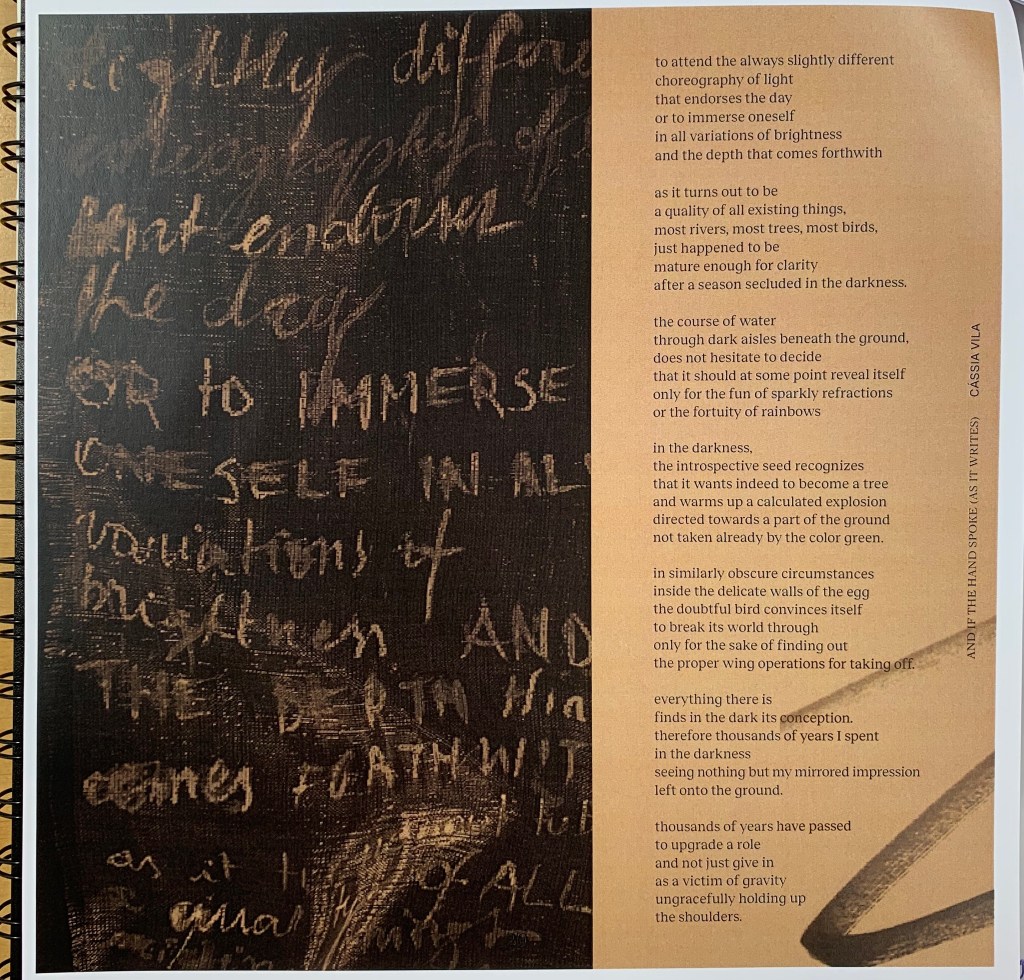 slightly differe
choreography of
that endorses
the day
OR to IMMERSE
ONESELF IN AL
variations of
brightness AND
THE DEPTH
comes FORTHWIT
as it
OF ALL
to attend the always slightly different
choreography of light
that endorses the day
or to immerse oneself
in all variations of brightness
and the depth that comes forthwith
as it turns out to be
a quality of all existing things,
most rivers, most trees, most birds,
just happened to be
mature enough for clarity
after a season secluded in the darkness.
the course of water
through dark aisles beneath the ground,
does not hesitate to decide
that it should at some point reveal itself
only for the fun of sparkly refractions
or the fortuity of rainbows
in the darkness,
the introspective seed recognizes
that it wants indeed to become a tree
and warms up a calculated explosion
directed towards a part of the ground
not taken already by the color green.
in similarly obscure circumstances
inside the delicate walls of the egg
the doubtful bird convinces itself
to break its world through
only for the sake of finding out
the proper wing operations for taking off.
everything there is
finds in the dark its conception.
therefore thousands of years I spent
in the darkness
seeing nothing but my mirrored impression
left onto the ground.
thousands of years have passed
to upgrade a role
and not just give in
as a victim of gravity
ungracefully holding up
the shoulders.
AND IF THE HAND SPOKE (AS IT WRITES) CÁSSIA VILA